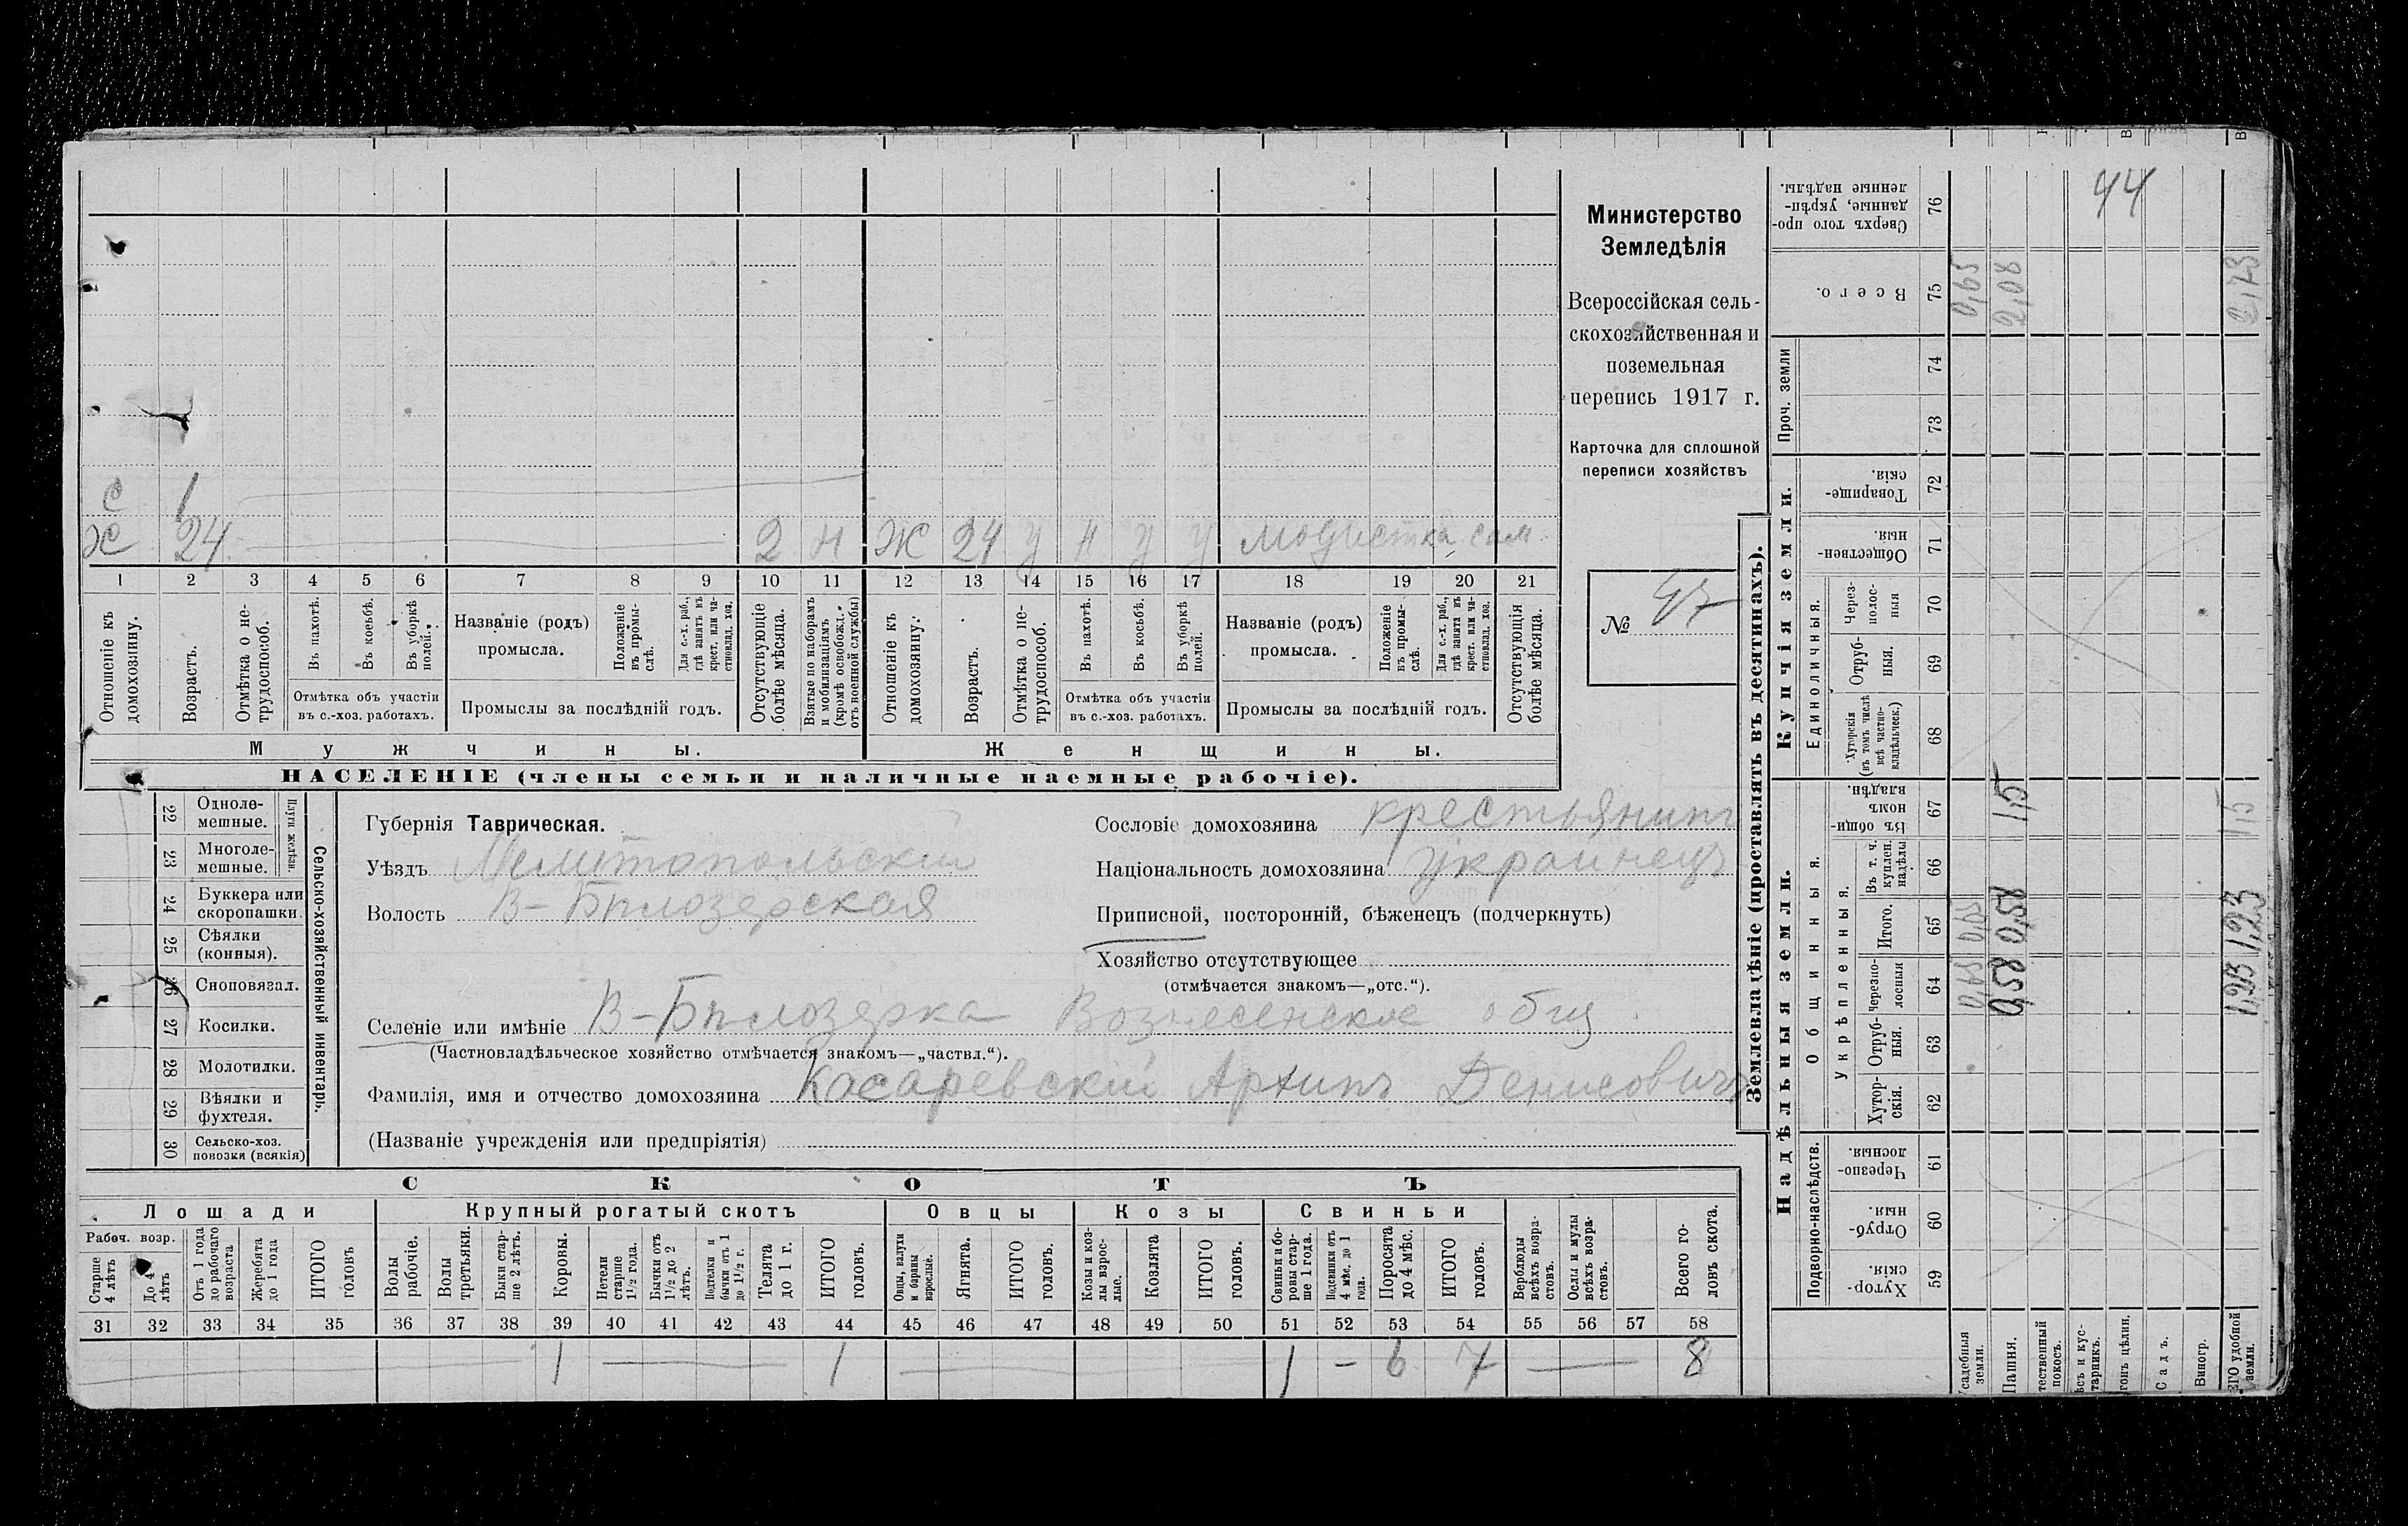 Министерство
Земледѣлія
Всероссійская сель-
скохозяйственная и
поземельная
перепись 1917 г.
Карточка для сплошной
переписи хозяйствъ
№ 47
с 1
х 24 2 н Ж 24 у н у у модистка сам
1 2 3 4 5 6 7 8 9 10 11 12 13 14 15 16 17 18 19 20 21
Отношеніе къ домохозяину.
Возрастъ.
Отмѣтка о не-трудоспособ.
Въ пахотѣ.
Въ косьбѣ.
Въ уборкѣ полей.
Отмѣтка объ участіи
въ с.-хоз. работахъ.
Названіе (родъ)
промысла.
Положеніе въ промы-слѣ.
Для с.-х. раб., гдѣ занятъ въ крест. или ча-стновлад. хоз.
Промыслы за послѣдній годъ.
Отсутствующіе болѣе мѣсяца.
Взятые по наборамъ и мобилизаціямъ (кромѣ освобожд. отъ военной службы)
Отношеніе къ домохозяину.
Возрастъ.
Отмѣтка о не-трудоспособ.
Въ пахотѣ.
Въ косьбѣ.
Въ уборкѣ полей.
Отмѣтка объ участіи
въ с.-хоз. работахъ.
Названіе (родъ)
промысла.
Положеніе въ промы-слѣ.
Для с.-х. раб., гдѣ занята въ крест. или ча-стновлад. хоз.
Промыслы за послѣдній годъ.
Отсутствующія болѣе мѣсяца.
Мужчины. Женщины.
НАСЕЛЕНІЕ (члены семьи и наличные наемные рабочіе).
22 Одноле-мешные.
23 Многоле-мешные.
Плуги желѣзн.
24 Буккера или скоропашки.
25 Сѣялки (конныя).
26 Сноповязал.
27 Косилки.
28 Молотилки.
29 Вѣялки и фухтеля.
30 Сельско-хоз. повозки (всякія)
Сельско-хозяйственный инвентарь.
Губернія Таврическая.
Уѣздъ Мелитопольскій
Волость В-Бѣлозерская
Сословіе домохозяина крестьянинъ
Національность домохозяина украинецъ
Приписной, посторонній, бѣженецъ (подчеркнуть)
Хозяйство отсутствующее
(отмѣчается знакомъ—„отс.“).
Селеніе или имѣніе В-Бѣлозерка Вознесенское общ.
(Частновладѣльческое хозяйство отмѣчается знакомъ—„частвл.“).
Фамилія, имя и отчество домохозяина Косаревскій Архипъ Денисовичъ
(Названіе учрежденія или предпріятія)
СКОТЪ
Лошади Крупный рогатый скотъ Овцы Козы Свиньи
Рабоч. возр.
Старше 4 лѣтъ
До 4 лѣтъ
Отъ 1 года до рабочаго возраста
Жеребята до 1 года
ИТОГО головъ
Волы рабочіе.
Волы третьяки.
Быки стар-ше 2 лѣтъ.
Коровы.
Нетели старше 1½ года.
Бычки отъ 1½ до 2 лѣтъ.
Подтелки и бычки отъ 1 до 1½ г.
Телята до 1 г.
ИТОГО головъ.
Овцы, валухи и бараны взрослые.
Ягнята.
ИТОГО головъ.
Козы и коз-лы взрос-лые.
Козлята
ИТОГО головъ.
Свиньи и бо-ровы стар-ше 1 года.
Подсвинки отъ 4 мѣс. до 1 года.
Поросята до 4 мѣс.
ИТОГО головъ.
Верблюды всѣхъ возра-стовъ.
Ослы и мулы всѣхъ возра-стовъ.
Всего го-ловъ скота.
31 32 33 34 35 36 37 38 39 40 41 42 43 44 45 46 47 48 49 50 51 52 53 54 55 56 57 58
1 1 1 - 6 7 8
Землевладѣніе (проставлять въ десятинахъ).
Надѣльныя земли. Купчія земли. Проч. земли
Подворно-наслѣдств. Общинныя. Единоличныя.
Укрѣпленныя.
Хутор-скія. 59
Отруб-ныя. 60
Черезпо-лосныя. 61
Хутор-скія. 62
Отруб-ныя. 63
Черезпо-лосныя 64 0,65 0,58 1,23
Итого. 65 0,65 0,58 1,23
Въ т. ч. куплен. надѣлы 66
Въ общи-номъ владѣн. 67 1,5 1,5
Хуторскія (въ томъ числѣ всѣ частно-владѣльческ.) 68
Отруб-ныя. 69
Через-полос-ныя 70
Обществен-ныя. 71
Товарище-скія. 72
73
74
Всего. 75 0,65 2,08 2,73
Сверхъ того про-данные, укрѣп-ленные надѣлы. 76
44
Усадебныя земли.
Пашня.
тественный покосъ.
ѣсъ и кус-тарникъ.
гонъ цѣлин.
Садъ.
Виногр.
ЕГО удобной земли.